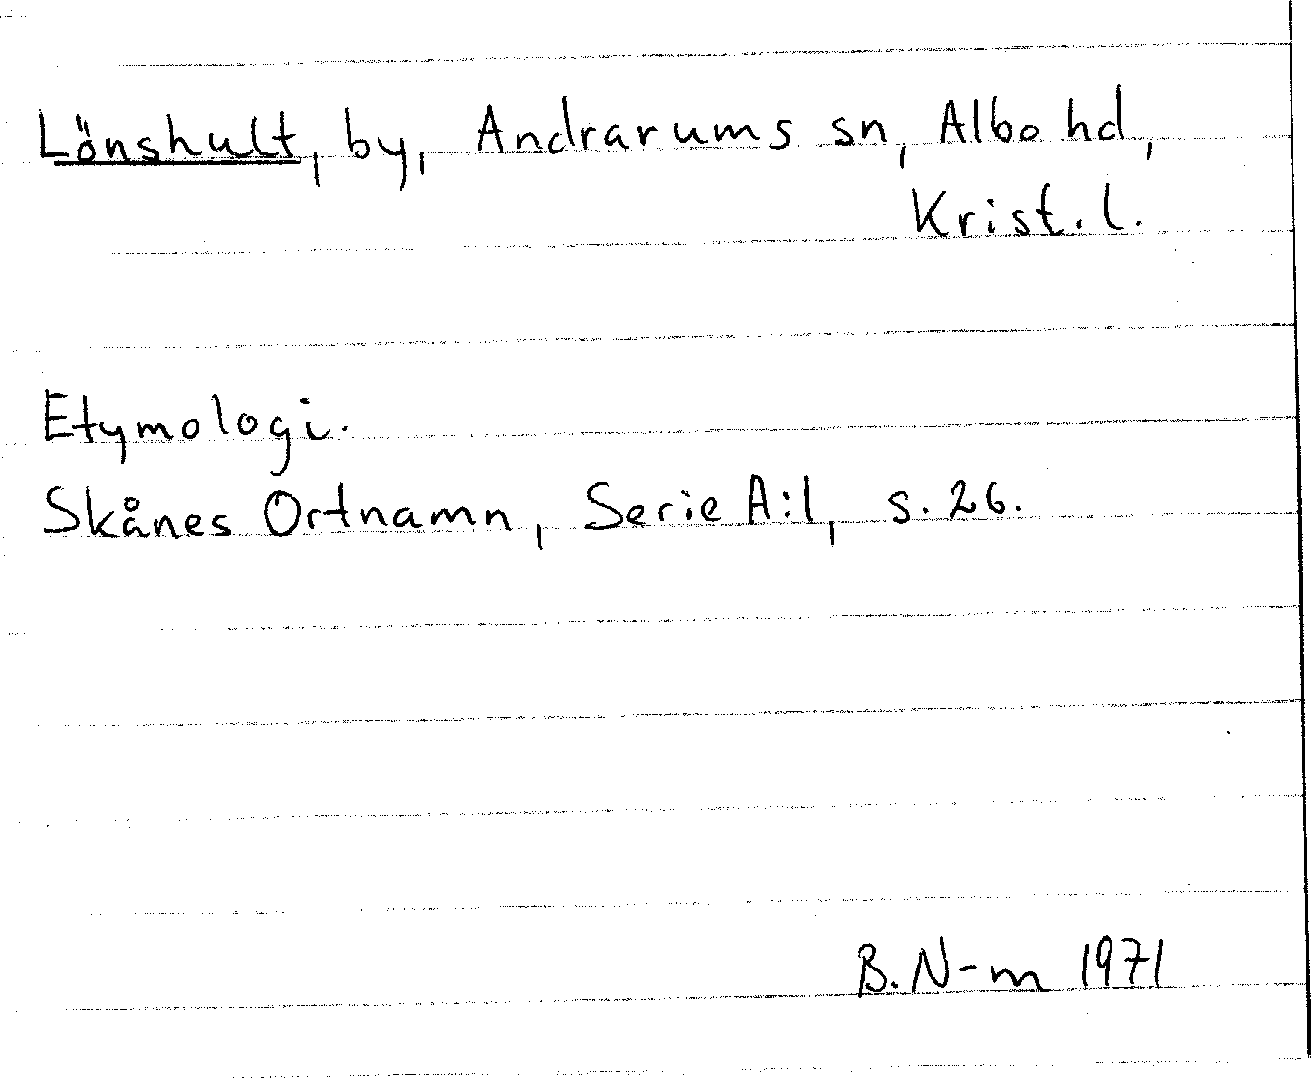 Lönshult, by, Andrarums sn, Albo hd,
Krist. l.
Etymologi.
Skånes Ortnamn, Serie A:1, s. 26.
B. N-m 1971